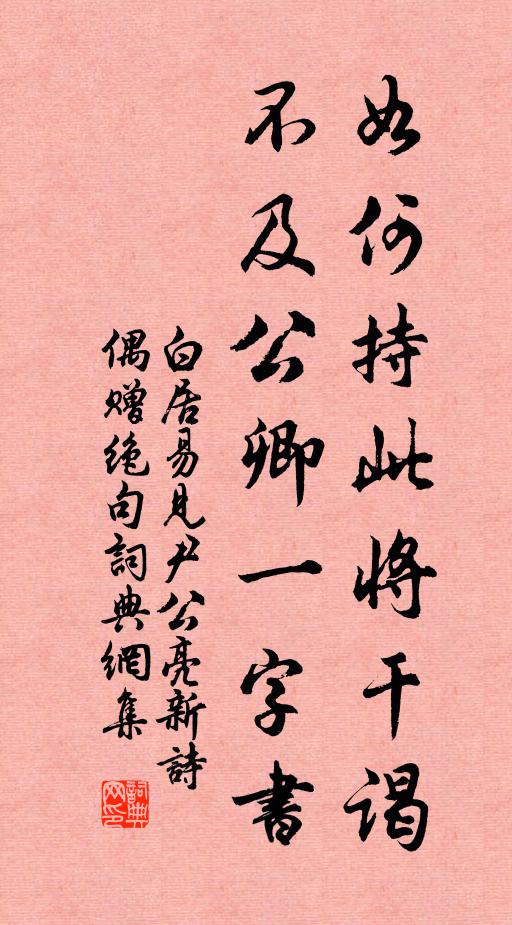 如何持此將干謁
不及公卿一字書
白居易見尹公亮新詩
偶贈絶句詞典網集
詞典
网印